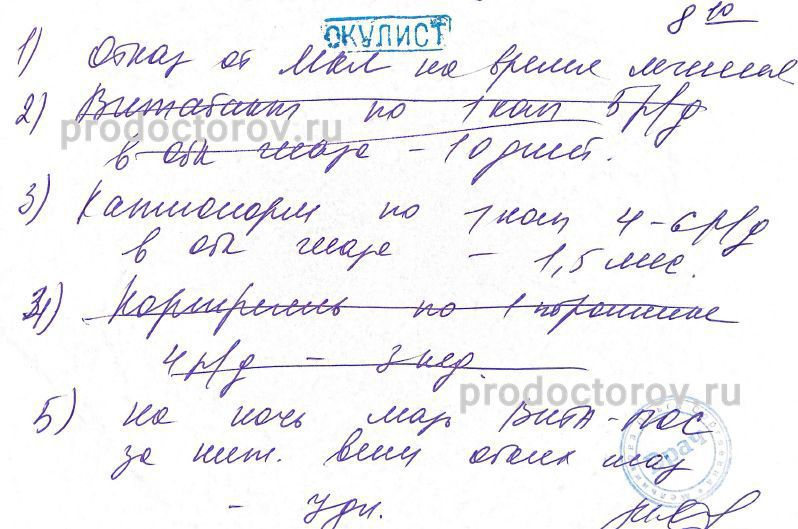 ОКУЛИСТ
8 10
1) Отказ от МКЛ на время лечения
2) Витабакт по 1 кап 5 р/д
prodoctorov.ru
в оба глаза – 10 дней.
3) Катионорм по 1 кап 4-6 р/д
в оба глаза – 1,5 мес.
4) Корнерегель по 1
4 р/д – 3 нед.
prodoctorov.ru
5) на ночь мазь ВИТА-ПОС
за ниж. веки обоих глаз
Врач
– 7 дн.